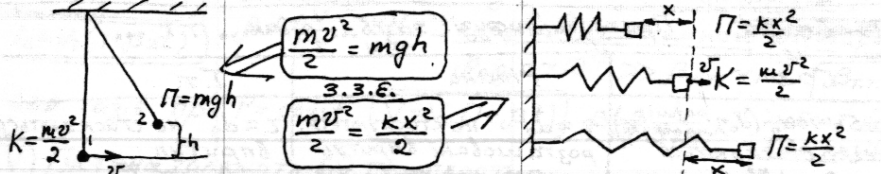 K = mv²/2
1
v
2
П = mgh
h
mv²/2 = mgh
З.З.Е.
mv²/2 = kx²/2
x
П = kx²/2
v
K = mv²/2
x
П = kx²/2